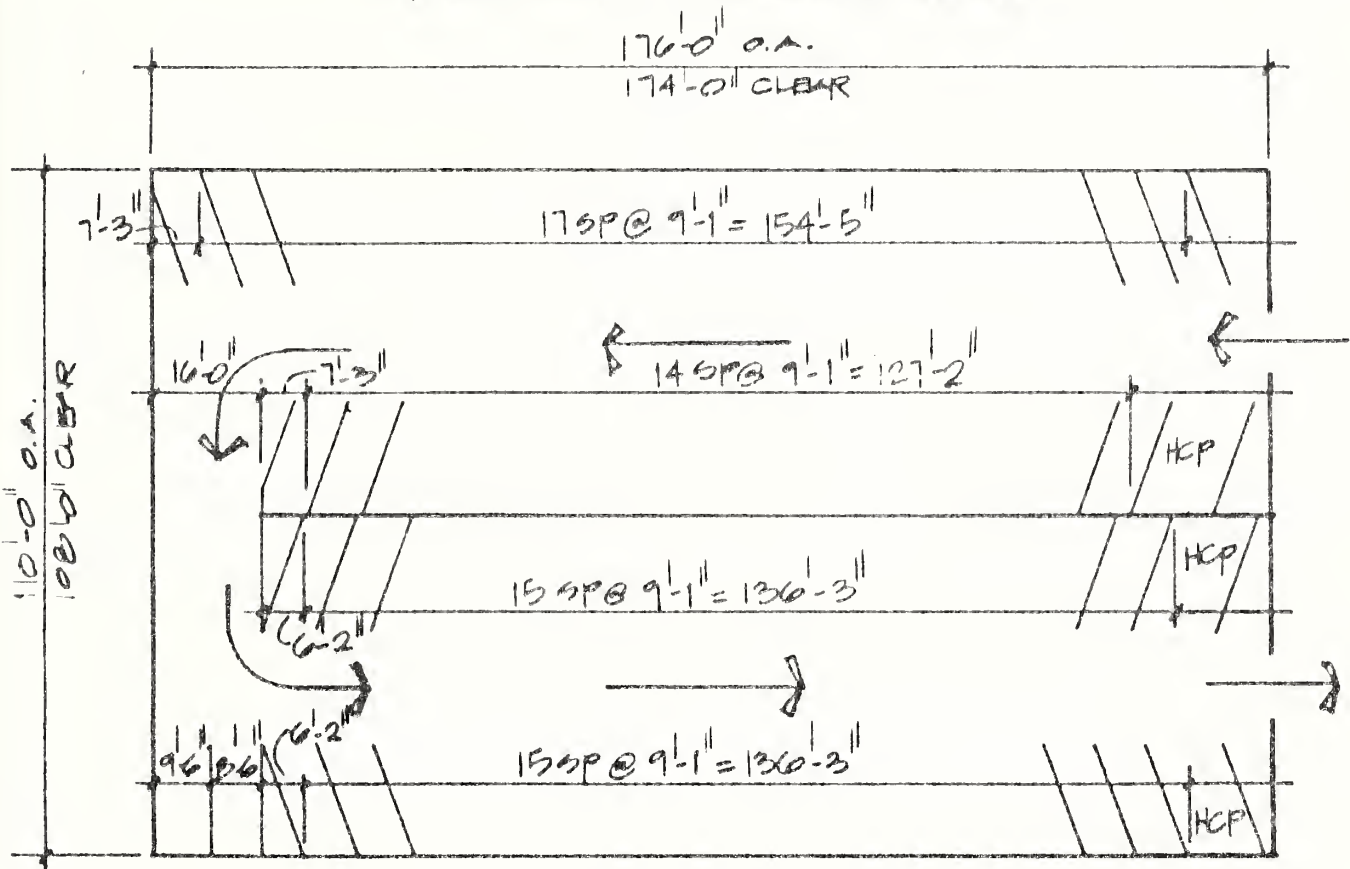 176'-0" O.A.
174'-0" CLEAR
110'-0" O.A.
108'-0" CLEAR
7'-3"
17 SP @ 9'-1" = 154'-5"
16'-0"
7'-3"
14 SP @ 9'-1" = 127'-2"
HCP
HCP
15 SP @ 9'-1" = 136'-3"
6'-2"
9'6"
8'6"
6'-2"
15 SP @ 9'-1" = 136'-3"
HCP